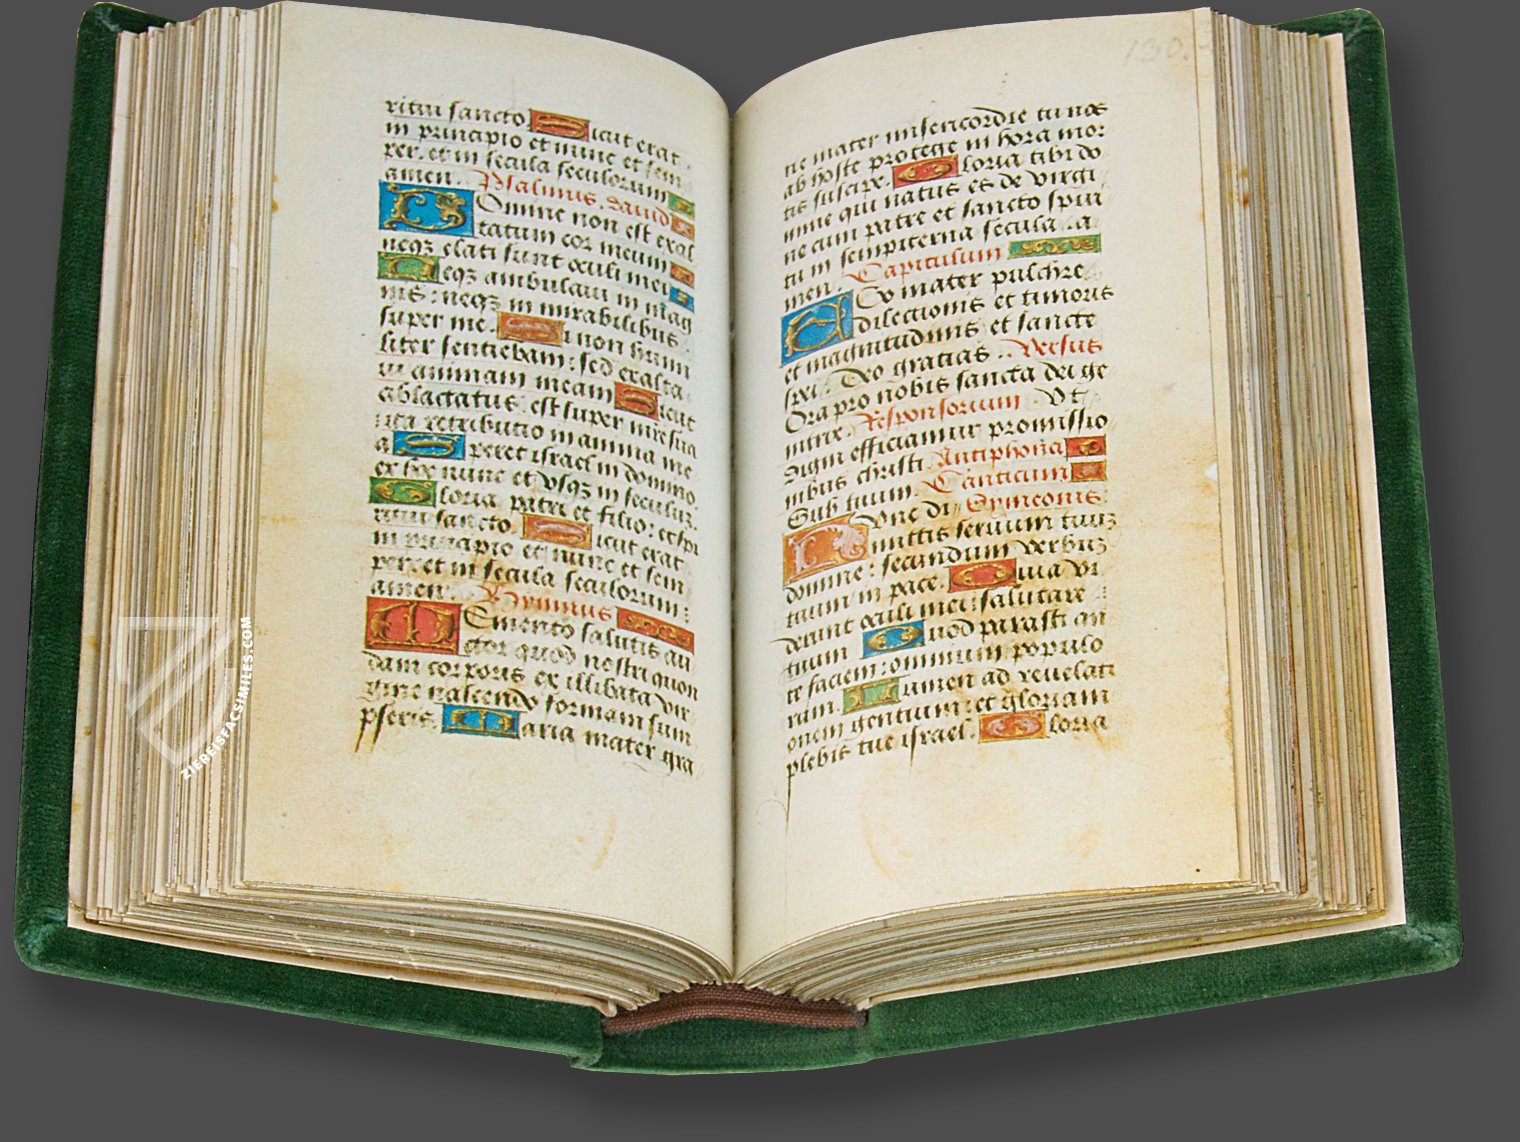 ritui sancto Sicut erat
in principio et nunc et sem
per. et in secula seculorum
amen. Psalmus. david
Domine non est exal
tatum cor meum
neqz elati sunt oculi mei
Neqz ambulavi in mag
nis: neqz in mirabilibus
super me. Si non humi
liter sentiebam: sed exalta
vi animam meam Sicut
ablactatus est super matre sua
ita retributio in anima me
a Speret israel in domino
ex hoc nunc et vsqz in seculuz.
Gloria patri et filio: et spi
ritui sancto. Sicut erat
in principio et nunc et sem
per. et in secula seculorum:
amen. Hymnus
Memento salutis au
ctor quod nostri quon
dam corporis ex illibata vir
gine nascendo formam sum
pseris. Maria mater gra
130.
tie mater misericordie tu nos
ab hoste protege in hora mor
tis suscipe. Gloria tibi do
mine qui natus es de virgi
ne cum patre et sancto spiri
tu in sempiterna secula. a
men. Capitulum
Ego mater pulchre
dilectionis et timoris
et magnitudinis et sancte
spei. Deo gratias. Versus
Ora pro nobis sancta dei ge
nitrix. Responsorium Vt
digni efficiamur promissio
nibus christi. Antiphona
Sub tuum. Canticum
Nunc di Symeonis.
mittis servum tuuz
domine: secundum verbuz
tuum in pace. Quia vi
derunt oculi mei: salutare
tuum Quod parasti an
te faciem: omnium populo
rum. Lumen ad revelati
onem gentium: et gloriam
plebis tue israel. Gloria
ZIEREISFACSIMILES.COM